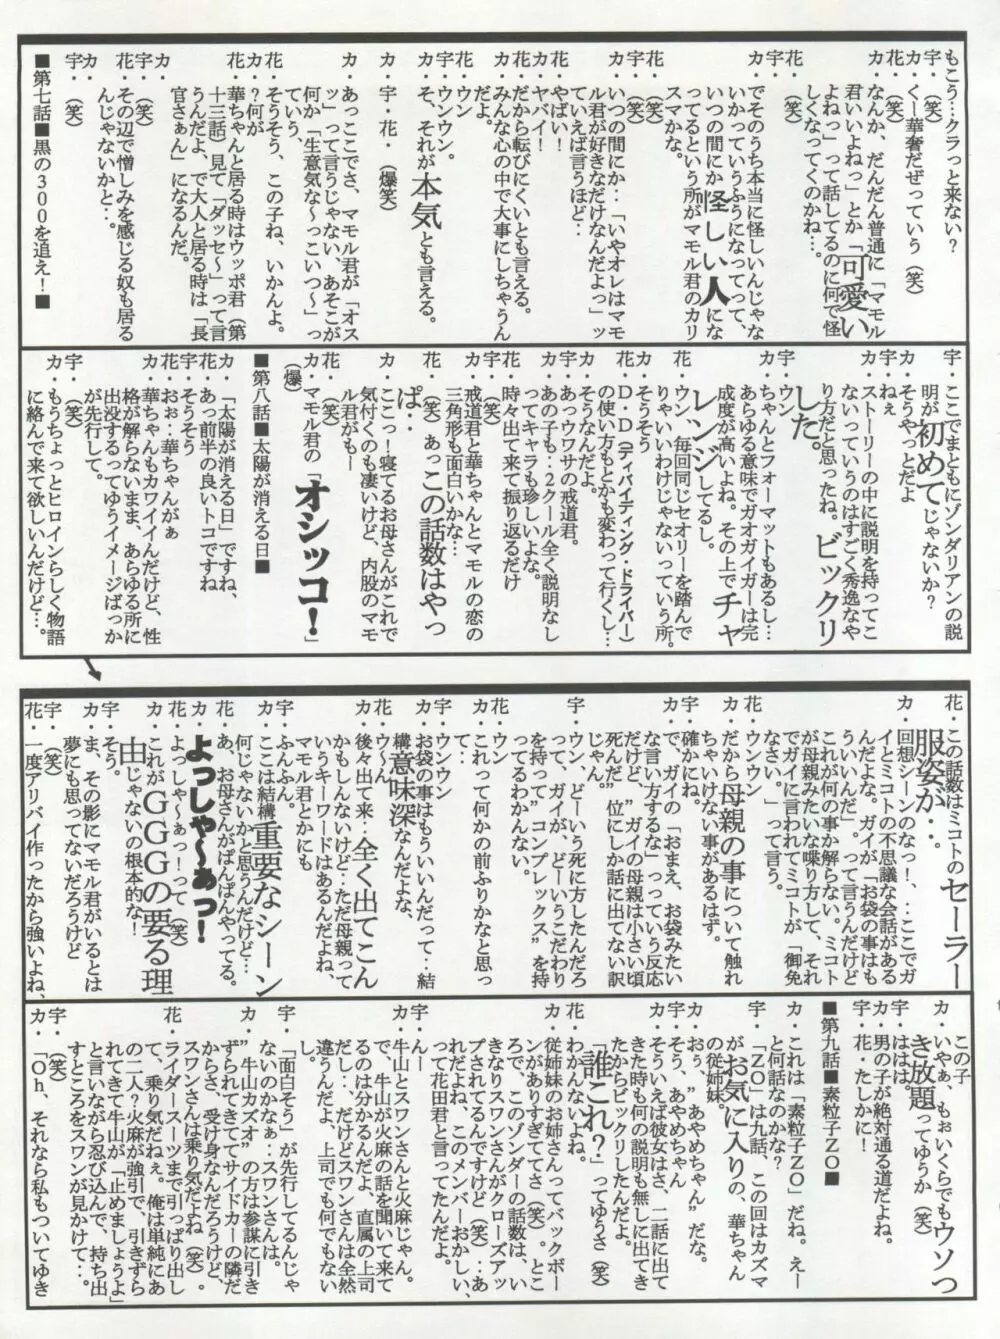 もこう…クラっと来ない？
宇・（笑）
カ・くー華奢だぜっていう（笑）
花・（笑）
カ・なんか、だんだん普通に「マモル
君いいよねっ」とか「可愛い
よねっ」って話してるのに何で怪
しくなってくのかね…。
花・（笑）
宇・（笑）
カ・でそのうち本当に怪しいんじゃな
いかっていうふうになってって、
いつの間にか怪しい人にな
ってるという所がマモル君のカリ
スマかな。
花・（笑）
宇・（笑）
カ・いつの間にか‥「いやオレはマモ
ル君が好きなだけなんだよっ」ッ
ていえば言うほど‥
花・やばい！
カ・ヤバイ！
花・だから転びにくいとも言える。
カ・みんな心の中で大事にしちゃうん
だよ。
花・ウン
宇・ウンウン。
カ・そ、それが本気とも言える。
宇・花・（爆笑）
カ・あっここでさ、マモル君が「オス
ッ」って言うじゃない、あそこが
何か「生意気な～っこいつ～」っ
ていう、
花・そうそう、この子ね、いかんよ。
カ・？何が
花・華ちゃんと居る時はウッポ君（第
十三話）見て「ダッセ～」って言
うんだよ、で大人と居る時は「長
官さぁん」になるんだ。
カ・
宇・（笑）
花・その辺で憎しみを感じる奴も居る
んじゃないかと‥。
カ・
宇・（笑）
■第七話■黒の３００を追え！■
宇・ここでまともにゾンダリアンの説
明が初めてじゃないか？
カ・そうやっとだよ
宇・ねぇ
カ・ストーリーの中に説明を持ってこ
ないっていうのはすごく秀逸なや
り方だと思ったね。ビックリ
した。
宇・ウン
カ・ちゃんとフォーマットもあるし…
あらゆる意味でガオガイガーは完
成度が高いよね。その上でチャ
レンジしてるし。
花・ウン、毎回同じセオリーを踏んで
りゃいいわけじゃないっていう所。
カ・そうそう
花・Ｄ・Ｄ（ディバイディング・ドライバー）
の使い方もとかも変わって行くし…
カ・そうなんだよ。
宇・あっウワサの戒道君。
カ・あの子も‥２クール全く説明なし
ってキャラも珍しいよな。
花・時々出て来て振り返るだけ
宇・（笑）
カ・戒道君と華ちゃんとマモルの恋の
三角形も面白いかな…
花・（笑）あっこの話数はやっ
ぱ‥
カ・ここっ！寝てるお母さんがこれで
気付くのも凄いけど、内股のマモ
ル君がもー
花・（笑）
カ・マモル君の「オシッコ！」
（爆）
■第八話■太陽が消える日■
カ・「太陽が消える日」ですね、
花・あっ前半の良いトコですね
カ・そうそう
花・おぉ‥華ちゃんがぁ
カ・華ちゃんもカワイイんだけど、性
格が解らないまま、あらゆる所に
出没するってゆうイメージばっか
が先行して。
宇・（笑）
カ・もうちょっとヒロインらしく物語
に絡んで来て欲しいんだけど…。
花・この話数はミコトのセーラー
服姿が‥．
カ・回想シーンのなっ！、‥ここでガ
イとミコトの不思議な会話がある
んだよな。ガイが「お袋の事はも
ういいんだ」って言うんだけど
これが何の事か解らない。ミコト
が母親みたいな喋り方して、それ
でガイに言われてミコトが「御免
なさい。」って言う。
だから母親の事について触れ
ちゃいけない事があるはず。
花・確かにね。
カ・で、ガイの「おまえ、お袋みたい
な言い方するな」っっていう反応
だけど、”ガイの母親は小さい頃
死んだ”位にしか話に出てない訳
じゃん。
宇・ウン、どーいう死に方したんだろ
って、ガイが、どーいうこだわり
を持って”コンプレックス”を持
ってるわかんない。
花・ウン
カ・これって何かの前ふりかなと思っ
て‥
宇・ウンウン
カ・お袋の事はもういいんだって‥結
構意味深なんだよな、
花・ウ～ん
カ・後々出て来‥全く出てこん
かもしんないけど‥ただ母親って
いうキーワードはあるんだよね、
マモル君とかにも
宇・ふんふん。
カ・ここは結構重要なシーン
何じゃないかと思うんだけど…
花・あ、お母さんがぱんぱんやってる。
カ・よっしゃ～ぁっ！
花・よっしゃ～ぁっ！って（笑）
カ・これがＧＧＧの要る理
由じゃないの根本的な！
宇・そう。
カ・ま、その影にマモル君がいるとは
夢にも思ってないだろうけど
宇・（笑）
花・一度アリバイ作ったから強いよね、
この子
カ・いやぁ、もぉいくらでもウソっ
き放題ってゆうか（笑）
宇・ははは。
カ・男の子が絶対通る道だよね。
宇・花・たしかに！
■第九話■素粒子ＺＯ■
カ・これは「素粒子ＺＯ」だね。えー
と何話なのかな？
宇・「ＺＯ」は九話、この回はカズマ
がお気に入りの、華ちゃん
の従姉妹。
カ・おぅ、”あやめちゃん”だな。
宇・そう、あやめちゃん
カ・そういえば彼女はさ、二話に出て
きた時も何の説明も無しに出てき
たからビックリしたんだよ。
「誰これ？」ってゆうさ（笑）
花・わかんないよね。
カ・従姉妹のお姉さんってバックボー
ンがありすぎててさ（笑）。とこ
ろで、このゾンダーの話数は、い
きなりスワンさんがクローズアッ
プされてるんですけど（笑）‥あ
れだよね、このメンバーおかしい、
って花田君と言ってたんだよ。
宇・んー
カ・牛山とスワンさんと火麻じゃん。
で、牛山が火麻の話を聞いて来て
るのは分かるんだよ、直属の上司
だし‥、だけどスワンさんは全然
違うんだよ、上司でも何でもない
し。
宇・「面白そう」が先行してるんじゃ
ないのかなぁ‥スワンさんは。
カ・”牛山カズオ”の方は参謀に引き
ずられてきててサイドカーの隣だ
からさ、受け身なんだろうけど、
スワンさんは乗り気だよね（笑）。
花・ライダースーツまで引っぱり出し
て、乗り気だねぇ。俺は単純にあ
の二人？火麻が強引で、引きずら
れてきて牛山が「止めましょうよ」
と言いながら忍び込んで、持ち出
すところをスワンが見かけて‥。
宇・（笑）
カ・「Ｏｈ、それなら私もついてゆき